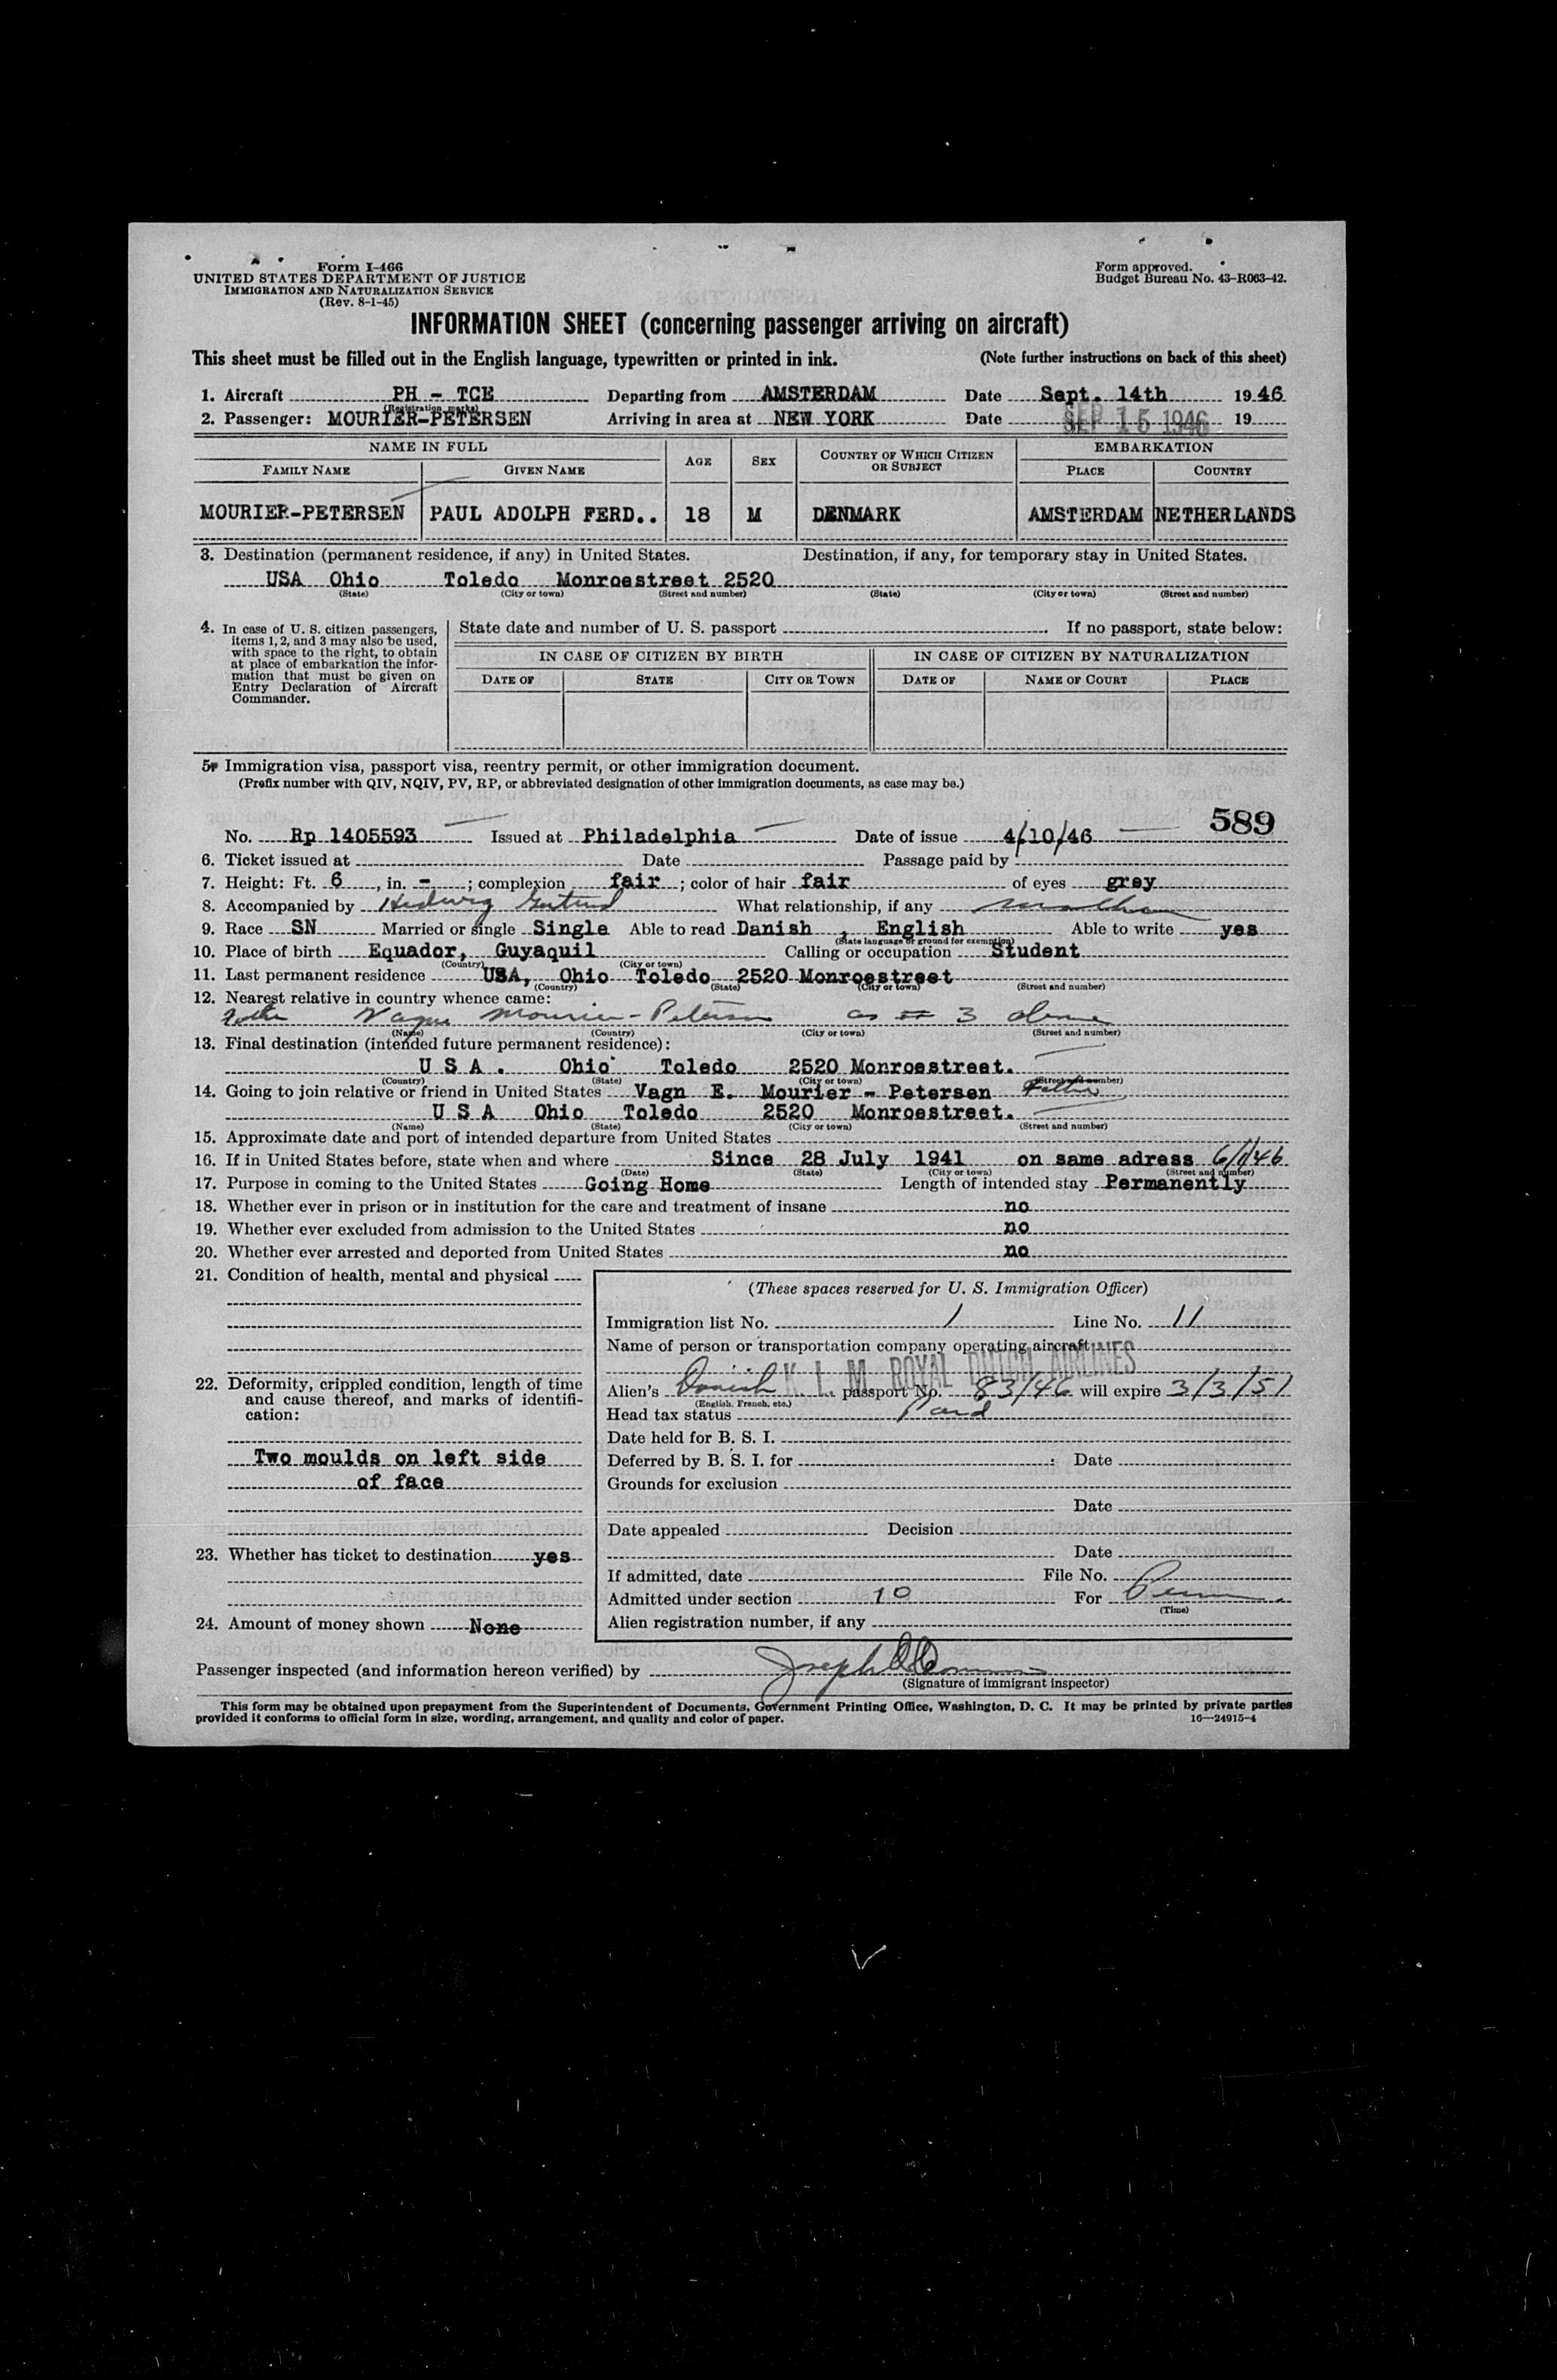 Form I-466
UNITED STATES DEPARTMENT OF JUSTICE
IMMIGRATION AND NATURALIZATION SERVICE
(Rev. 8-1-45)
Form approved.
Budget Bureau No. 43-R063-42.
INFORMATION SHEET (concerning passenger arriving on aircraft)
This sheet must be filled out in the English language, typewritten or printed in ink. (Note further instructions on back of this sheet)
1. Aircraft PH - TCE Departing from AMSTERDAM Date Sept. 14th 1946
(Registration marks)
2. Passenger: MOURIER-PETERSEN Arriving in area at NEW YORK Date SEP 15 1946 19
NAME IN FULL AGE SEX COUNTRY OF WHICH CITIZEN OR SUBJECT EMBARKATION
FAMILY NAME GIVEN NAME PLACE COUNTRY
MOURIER-PETERSEN PAUL ADOLPH FERD.. 18 M DENMARK AMSTERDAM NETHERLANDS
3. Destination (permanent residence, if any) in United States. Destination, if any, for temporary stay in United States.
USA Ohio Toledo Monroestreet 2520
(State) (City or town) (Street and number) (State) (City or town) (Street and number)
4. In case of U. S. citizen passengers, items 1, 2, and 3 may also be used, with space to the right, to obtain at place of embarkation the information that must be given on Entry Declaration of Aircraft Commander.
State date and number of U. S. passport . If no passport, state below:
IN CASE OF CITIZEN BY BIRTH IN CASE OF CITIZEN BY NATURALIZATION
DATE OF STATE CITY OR TOWN DATE OF NAME OF COURT PLACE
5. Immigration visa, passport visa, reentry permit, or other immigration document.
(Prefix number with QIV, NQIV, PV, RP, or abbreviated designation of other immigration documents, as case may be.)
589
No. Rp 1405593 Issued at Philadelphia Date of issue 4/10/46
6. Ticket issued at Date Passage paid by
7. Height: Ft. 6, in. -; complexion fair; color of hair fair of eyes grey
8. Accompanied by Hedwig Gertrud What relationship, if any mother
9. Race SN Married or single Single Able to read Danish , English Able to write yes
(State language or ground for exemption)
10. Place of birth Equador, Guyaquil Calling or occupation Student
(Country) (City or town)
11. Last permanent residence USA, Ohio Toledo 2520 Monroestreet
(Country) (State) (City or town) (Street and number)
12. Nearest relative in country whence came:
Father Vagn Mourier-Petersen as # 3 above
(Name) (Country) (City or town) (Street and number)
13. Final destination (intended future permanent residence):
U S A . Ohio Toledo 2520 Monroestreet.
(Country) (State) (City or town) (Street and number)
14. Going to join relative or friend in United States Vagn E. Mourier - Petersen Father
U S A Ohio Toledo 2520 Monroestreet.
(Name) (State) (City or town) (Street and number)
15. Approximate date and port of intended departure from United States
16. If in United States before, state when and where Since 28 July 1941 on same adress 6/1/46
(Date) (State) (City or town) (Street and number)
17. Purpose in coming to the United States Going Home Length of intended stay Permanently
18. Whether ever in prison or in institution for the care and treatment of insane no
19. Whether ever excluded from admission to the United States no
20. Whether ever arrested and deported from United States no
21. Condition of health, mental and physical
22. Deformity, crippled condition, length of time and cause thereof, and marks of identification:
Two moulds on left side
of face
23. Whether has ticket to destination yes
24. Amount of money shown None
(These spaces reserved for U. S. Immigration Officer)
Immigration list No. 1 Line No. 11
Name of person or transportation company operating aircraft:
K. L. M. ROYAL DUTCH AIRLINES
Alien's Danish passport No. 83/46 will expire 3/3/51
(English, French, etc.)
Head tax status Paid
Date held for B. S. I.
Deferred by B. S. I. for : Date
Grounds for exclusion
Date
Date appealed Decision
Date
If admitted, date File No.
Admitted under section 10 For Perm
(Time)
Alien registration number, if any
Passenger inspected (and information hereon verified) by Joseph
(Signature of immigrant inspector)
This form may be obtained upon prepayment from the Superintendent of Documents, Government Printing Office, Washington, D. C. It may be printed by private parties
provided it conforms to official form in size, wording, arrangement, and quality and color of paper. 16—24915-4